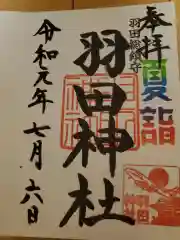 奉拝
羽田総鎮守
夏詣
羽田神社
令和元年七月六日